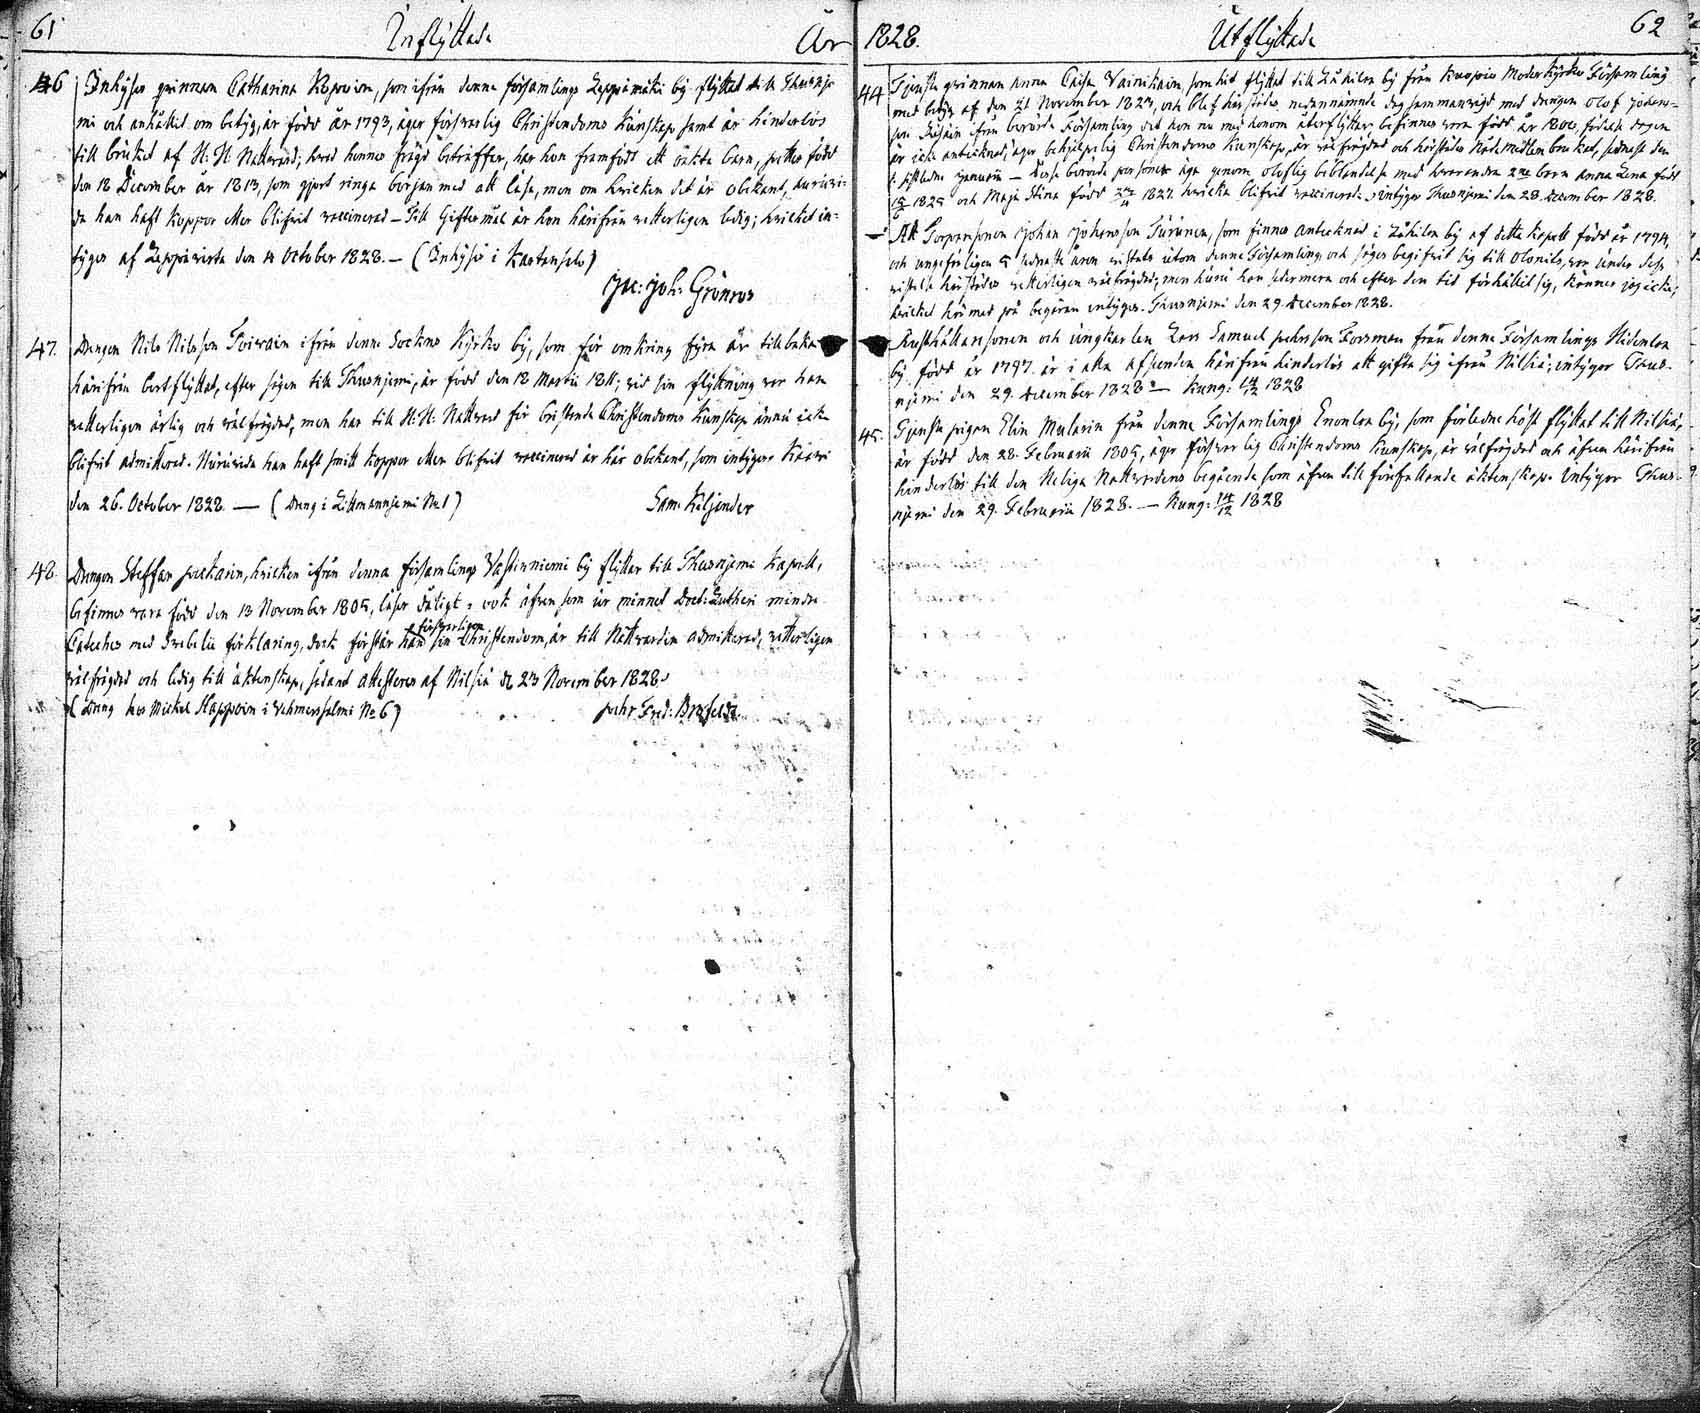 61 Inflyttade År
46 Inhyses qvinnan Catharina , som ifrån denne församlings Leppämäki by flyttat till Thusnje-
mi och anhållit om betyg, är född år 1793, äger försvarlig Christendoms kunskap samt är hinderlös
till bruket af H: H: Nattward; hvad hennes frägd beträffar, har hon framfödt ett oäkta barn, född
den 18 December år 1813, som gjort ringa början med att läsa, men om hvilken det är obekant, huruvi-
da han haft koppor eller blifvit vaccinerad – Till Giftermål är hon härifrån vetterligen ledig; hvilket in-
tygas af Leppävirta den 4 October 1828. – (Inhyses i Kartansalo)
Jac: Joh: Grönros
47. Drengen Nils Nilsson Toivain ifrån denne Sockns Kyrko by, som för omkring fyra år tillbaka
härifrån bortflyttat, efter sägen till Thusnjemi, är född den 18 Martii 1811; vid sin flyttning var han
vetterligen ärlig och välfrägdad, men har till H: H: Nattward för bristande Christendoms kunskap ännu icke
blifvit admitterad. Huruvida han haft smitt koppor eller blifvit vaccinerad är här obekant, som intygas Kaavi
den 26. October 1828 — (Dreng i Litmanniemi No 1)
Sam. Kiljander
48. Drengen Steffan , hvilken ifrån denna församlings Västinniemi by flyttar till Thusnjemi Kapell,
befinnes vara född den 13 November 1805, läser dåligt, och äfven som ur minnet Doct: Lutheri mindre
Cateches med Svebelii förklaring, dock förstår han försvarligen sin Christendom, är till Nattvarden admitterad, vetterligen
välfrägdad och ledig till äktenskap, sådant attesteras af Nilsiä d. 23 November 1828.
(Dreng hos Mickel Happoin i Vehmersalmi No 6)
Pehr Fred:
1828. Utflyttade 62
44 Tjenste qvinnan Anna Caisa Vainikain, som hit flyttat till Lähilen by från Kuopio Moderkyrko Församling
med betyg af den 21 November 1827, och blef härstädes nedannämnde dag sammanvigd med drengen Olof Johans-
son ifrån berörde Församling dit hon nu med honom återflyttar, befinnes vara född år 1800, födelse dagen
är icke antecknad, äger behjelpelig Christendoms kunskap, är välfrägdad och härstädes Nådemedlen brukat, sednast den
sistledne Januarii — Desse berörde personer äga genom oloflig beblandelse med hvarandra 2ne barn Anna Lena född
1825 och Maja Stina född 1827. hvilka blifvit vaccinerade; intygar Thusnjemi den 28. December 1828.
– Att Torparsonen Johan Johansson Turunen, som finnes antecknad i Lähilen by af detta kapell född år 1794,
och ungefärligen 5 sednaste åren vistats utom denne Församling och säges begifvit sig till Olonits, var under dess
vistelse härstädes vetterligen välfrägdad; men huru han sedermera och efter den tid förhållit sig, kännes jag icke;
hvilket härmed på begäran intygas. Thusnjemi den 29. December 1828.
Rusthållarsonen och ungkarlen Lars Samuel Pehrsson Forsman från denne Församlings Hidenlax
by född år 1797. är i alla afseenden härifrån hinderlös att gifta sig ifrån Nilsiä; intygar Thus-
njemi den 29. December 1828 — Kung: 14/12 1828
45. Tjenste pigan Elin från denne Församlings Enonlax by, som förledne höst flyttat till Nilsiä,
är född den 28. Februarii 1805, äger försvarlig Christendoms kunskap, är välfrägdad och äfven härifrån
hinderlös till den Heliga Nattvardens begående som äfven till förefallande äktenskap. Intygar Thus-
njemi den 29. Februarii 1828. — Kung: 14/12 1828